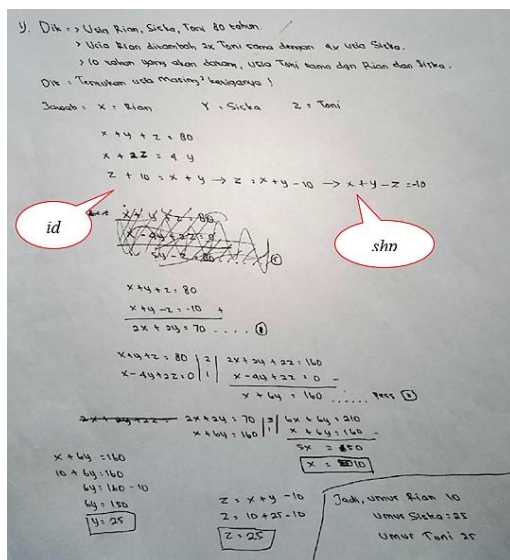 y. Dik : > Usia Rian, Siska, Toni 80 tahun.
> Usia Rian ditambah 2x Toni sama dengan 4x usia Siska.
> 10 tahun yang akan datang, usia Toni sama dgn Rian dan Siska.
Dit : Tentukan usia masing² ketiganya !
Jawab : X = Rian Y = Siska Z = Toni
x + y + z = 80
x + 2z = 4y
z + 10 = x + y → z = x + y - 10 → x + y - z = -10
id
shp
x - 4y + 2z = 0
x + y + z = 80
x + y - z = -10 +
2x + 2y = 70 ..... ①
x + y + z = 80 | 2 | 2x + 2y + 2z = 160
x - 4y + 2z = 0 | 1 | x - 4y + 2z = 0 -
x + 6y = 160 ...... pers ②
2x + 2y + 2z = 2x + 2y = 70 | 3 | 6x + 6y = 210
x + 6y = 160 | 1 | x + 6y = 160 -
5x = 50
x = 10
x + 6y = 160
10 + 6y = 160
6y = 160 - 10
6y = 150
y = 25
z = x + y - 10
z = 10 + 25 - 10
z = 25
Jadi, umur Rian 10
umur Siska = 25
umur Toni 25